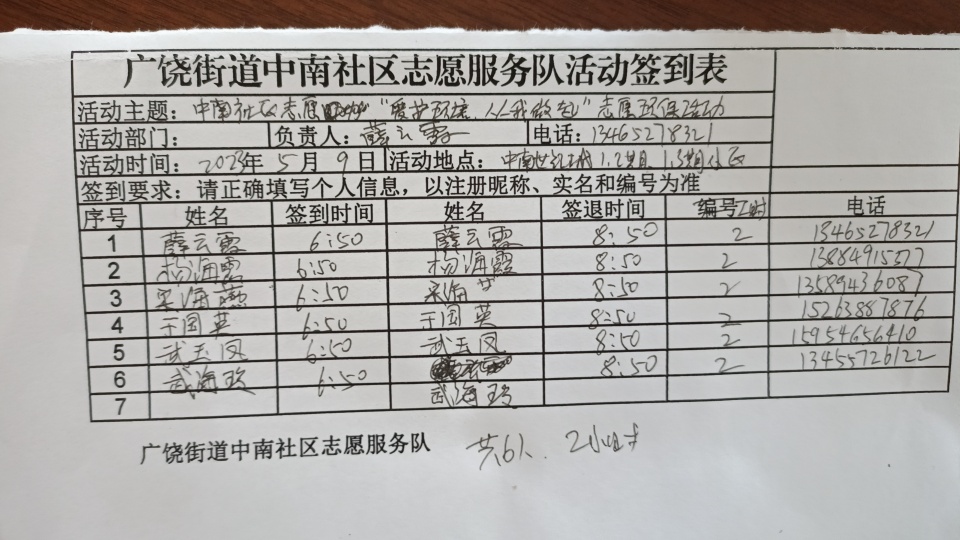 广饶街道中南社区志愿服务队活动签到表
活动主题：中南社区志愿 "爱护环境、人人我做起" 志愿环保活动
活动部门： 负责人：薛云霞 电话：13465278321
活动时间：2023年5月9日 活动地点：中南世纪城1.2期 1.3期小区
签到要求：请正确填写个人信息，以注册昵称、实名和编号为准
序号 姓名 签到时间 姓名 签退时间 编号 电话
1 薛云霞 6:50 薛云霞 8:50 2 13465278321
2 杨海霞 6:50 杨海霞 8:50 2 13884915377
3 宋海燕 6:50 宋海 8:50 2 13589436087
4 于国英 6:50 于国英 8:50 2 15263887876
5 武玉凤 6:50 武玉凤 8:50 2 15954656410
6 武海玲 6:50 8:50 2 13455726122
7 武海玲
广饶街道中南社区志愿服务队 共6人、2小时